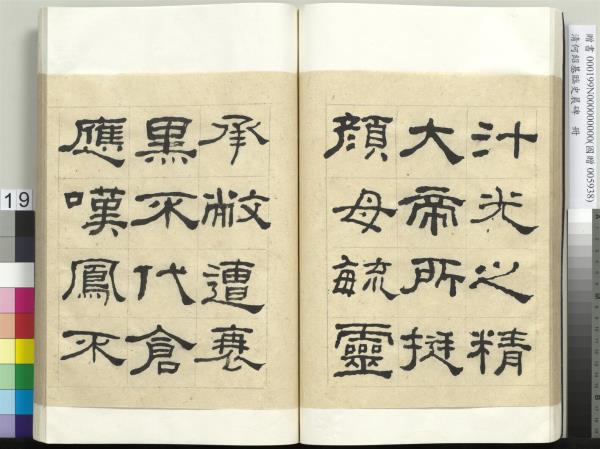 汁光之精
大帝所挺
顏母毓靈
承敝遭衰
黑不代倉
應嘆鳳不
贈書 000199N000000000(國贈 005938)
清何紹基臨史晨碑 冊
19